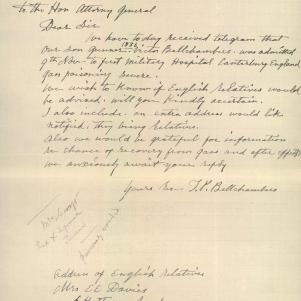 To the Hon Attorney General
Dear Sir
We have to day received telegram that
our son Gunner 1836 Victor Bellchambers. was admitted
9th Nov. to first Military Hospital Canterbury England
gas poisoning severe.
We wish to Know if English Relatives would
be advised. will you Kindly ascertain.
I also include an extra address would like
notified, they being Relative.
Also we would be grateful for information
re chance of recovery from gas and after effects
we anxiously await your reply
Yours T.P. Bellchambers
Address of English Relatives
Mrs E E Davies